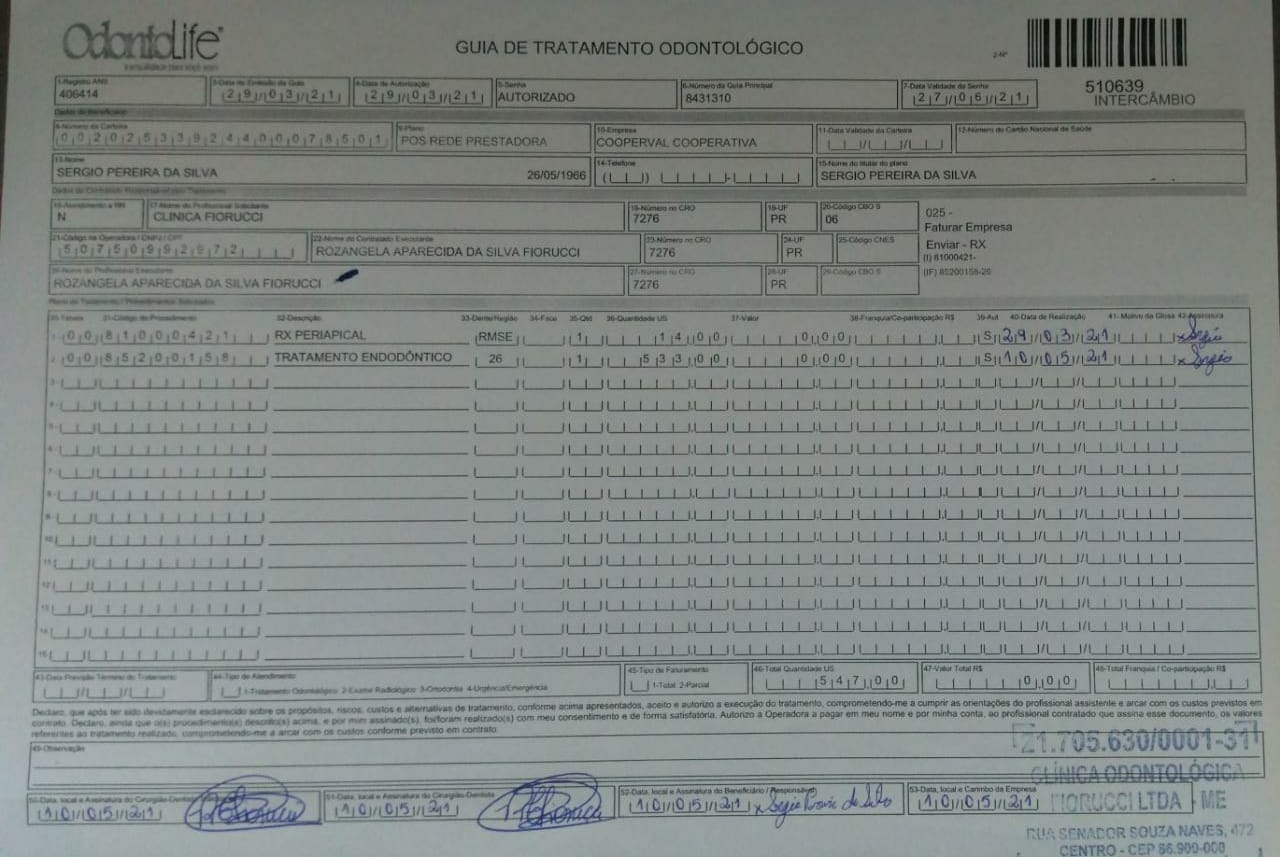 OdontoLife
GUIA DE TRATAMENTO ODONTOLÓGICO
2-Nº
510639
INTERCÂMBIO
1-Registro ANS 3-Data de Emissão da Guia 4-Data de Autorização 5-Senha 6-Número da Guia Principal 7-Data Validade da Senha
406414 29/03/21 29/03/21 AUTORIZADO 8431310 27/06/21
Dados do Beneficiário
8-Número da Carteira 9-Plano 10-Empresa 11-Data Validade da Carteira 12-Número do Cartão Nacional de Saúde
00202533924400078501 POS REDE PRESTADORA COOPERVAL COOPERATIVA
13-Nome 14-Telefone 15-Nome do titular do plano
SERGIO PEREIRA DA SILVA 26/05/1966 SERGIO PEREIRA DA SILVA
Dados do Contratado Responsável pelo Tratamento
16-Atendimento a RN 17-Nome do Profissional Solicitante 18-Número no CRO 19-UF 20-Código CBO S
N CLINICA FIORUCCI 7276 PR 06
025 -
Faturar Empresa
Enviar - RX
(I) 81000421-
(IF) 85200158-26
21-Código na Operadora / CNPJ / CPF 22-Nome do Contratado Executante 23-Número no CRO 24-UF 25-Código CNES
50750992972 ROZANGELA APARECIDA DA SILVA FIORUCCI 7276 PR
26-Nome do Profissional Executante 27-Número no CRO 28-UF 29-Código CBO S
ROZANGELA APARECIDA DA SILVA FIORUCCI 7276 PR
Plano de Tratamento / Procedimentos Solicitados
30-Tabela 31-Código do Procedimento 32-Descrição 33-Dente/Região 34-Face 35-Qtd 36-Quantidade US 37-Valor 38-Franquia/Co-participação R$ 39-Aut 40-Data de Realização 41-Motivo da Glosa 42-Assinatura
1- 00 81000421 RX PERIAPICAL RMSE 1 14,00 0,00 S 29/03/21 x Sergio
2- 00 85200158 TRATAMENTO ENDODÔNTICO 26 1 533,00 0,00 S 10/05/21 x Sergio
3-
4-
5-
6-
7-
8-
9-
10-
11-
12-
13-
14-
15-
43-Data Previsão Término do Tratamento 44-Tipo de Atendimento 45-Tipo de Faturamento 46-Total Quantidade US 47-Valor Total R$ 48-Total Franquia / Co-participação R$
1-Tratamento Odontológico 2-Exame Radiológico 3-Ortodontia 4-Urgência/Emergência 1-Total 2-Parcial 547,00 0,00
Declaro, que após ter sido devidamente esclarecido sobre os propósitos, riscos, custos e alternativas de tratamento, conforme acima apresentados, aceito e autorizo a execução do tratamento, comprometendo-me a cumprir as orientações do profissional assistente e arcar com os custos previstos em
contrato. Declaro, ainda que o(s) procedimento(s) descrito(s) acima, e por mim assinado(s), foi/foram realizado(s) com meu consentimento e de forma satisfatória. Autorizo a Operadora a pagar em meu nome e por minha conta, ao profissional contratado que assina esse documento, os valores
referentes ao tratamento realizado, comprometendo-me a arcar com os custos conforme previsto em contrato.
49-Observação
21.705.630/0001-31
CLÍNICA ODONTOLÓGICA
FIORUCCI LTDA - ME
RUA SENADOR SOUZA NAVES, 472
CENTRO - CEP 86.900-000
50-Data, local e Assinatura do Cirurgião-Dentista 51-Data, local e Assinatura do Cirurgião-Dentista 52-Data, local e Assinatura do Beneficiário / Responsável 53-Data, local e Carimbo da Empresa
10/05/21 10/05/21 10/05/21 x Sergio Pereira da Silva 10/05/21